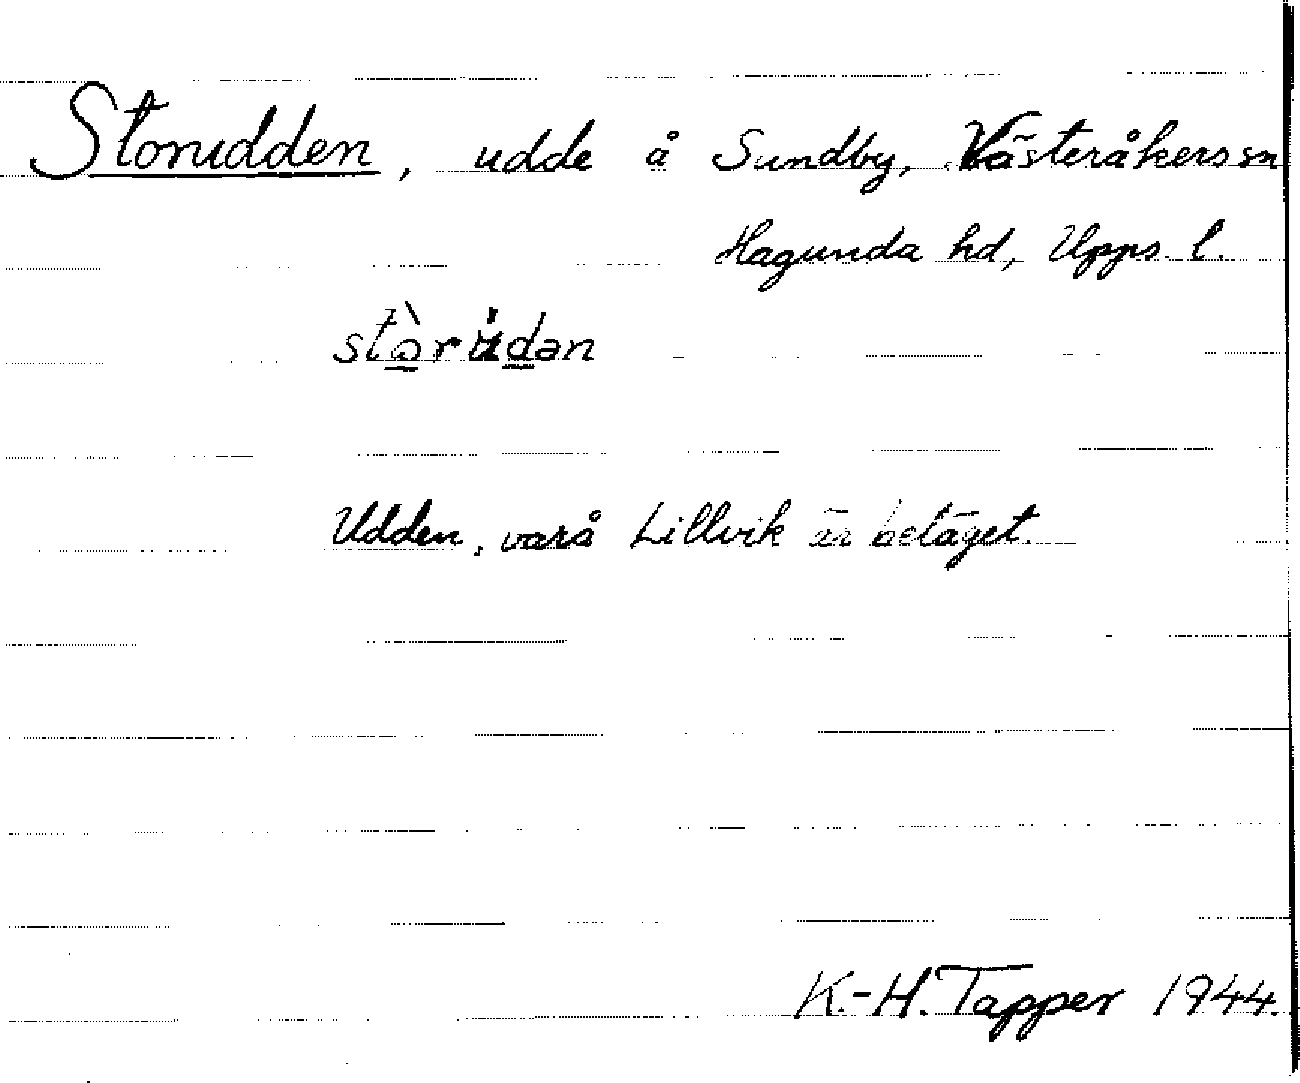 Storudden, udde å Sundby, Västeråkers sn
Hagunda hd, Upps. l.
stò̱rúd̲ən
Udden, varå Lillvik är beläget.
K.-H. Tapper 1944.